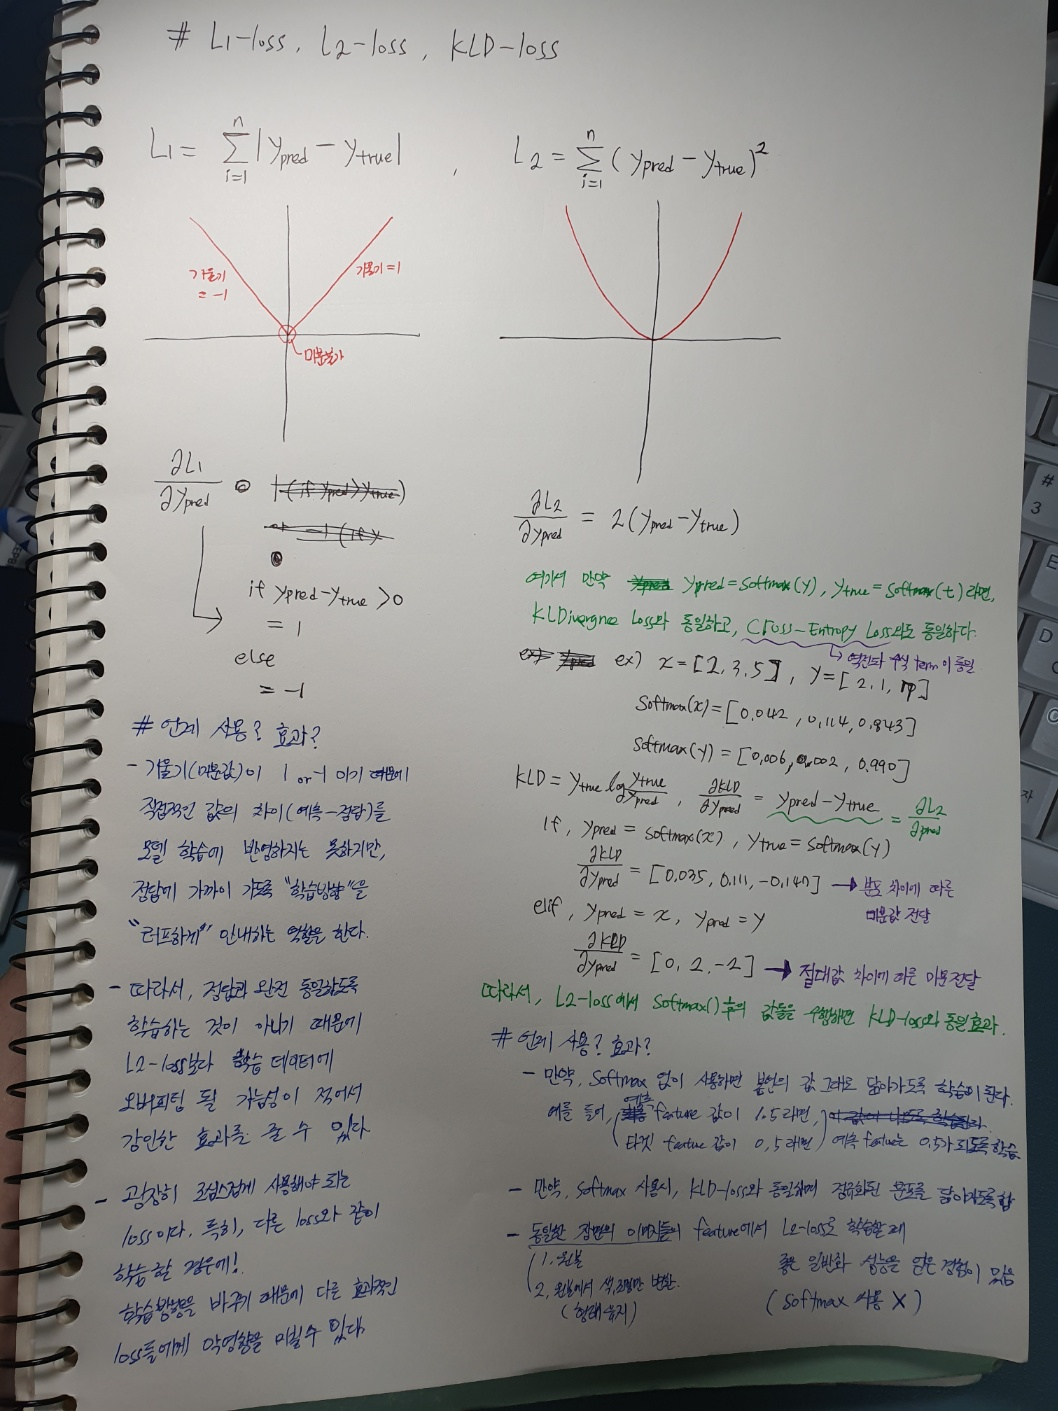 # L1-loss, L2-loss, KLD-loss
L1 = Σ(i=1..n) |ypred - ytrue| ,
기울기
= -1
기울기=1
미분불가
∂L1/∂ypred
if ypred-ytrue >0
= 1
else
= -1
# 언제 사용? 효과?
- 기울기(미분값)이 1 or -1 이기 때문에
직접적인 값의 차이(예측-정답)를
모델 학습에 반영하지는 못하지만,
정답에 가까이 가도록 "학습방향"을
"러프하게" 안내하는 역할을 한다.
- 따라서, 정답과 완전 동일하도록
학습하는 것이 아니기 때문에
L2-loss보다 학습 데이터에
오버피팅 될 가능성이 적어서
강인한 효과를 줄 수 있다.
- 굉장히 조심스럽게 사용해야 되는
loss이다. 특히, 다른 loss와 같이
학습할 경우에!
학습방향을 바꾸기 때문에 다른 효과적인
loss들에게 악영향을 미칠 수 있다.
L2 = Σ(i=1..n) (ypred - ytrue)²
∂L2/∂ypred = 2(ypred-ytrue)
여기서 만약 ypred=softmax(y), ytrue=softmax(t)라면,
KLDivergnce Loss와 동일하고, Cross-Entropy Loss와도 동일하다.
↳ 역전파 수식 term이 동일
ex) x=[2,3,5], y=[2,1,7]
softmax(x)=[0.042, 0.114, 0.843]
softmax(y)=[0.006, 0.002, 0.990]
KLD = ytrue log ytrue/ypred, ∂KLD/∂ypred = ypred-ytrue = ∂L2/∂pred
If, ypred=softmax(x), ytrue=softmax(y)
∂KLD/∂ypred = [0.035, 0.111, -0.147] → 분포 차이에 따른
미분값 전달
elif, ypred=x, ypred=y
∂KLD/∂ypred = [0, 2, -2] → 절대값 차이에 따른 미분전달
따라서, L2-loss에서 softmax()후의 값들을 수행하면 KLD-loss와 동일효과.
# 언제 사용? 효과?
- 만약, softmax 없이 사용하면 본연의 값 그대로 닮아가도록 학습이 된다.
예를 들어, 예측 feature 값이 1.5라면,
타겟 feature 값이 0.5라면 예측 feature는 0.5가 되도록 학습
- 만약, softmax 사용시, KLD-loss와 동일하며 정규화된 분포를 닮아가도록 함
- 동일한 장면의 이미지들의 feature에서 L2-loss로 학습할 때
1. 원본
2. 원본에서 색, 조명만 변환.
(형태 유지)
좋은 일반화 성능을 얻은 경험이 있음
(softmax 사용 X)